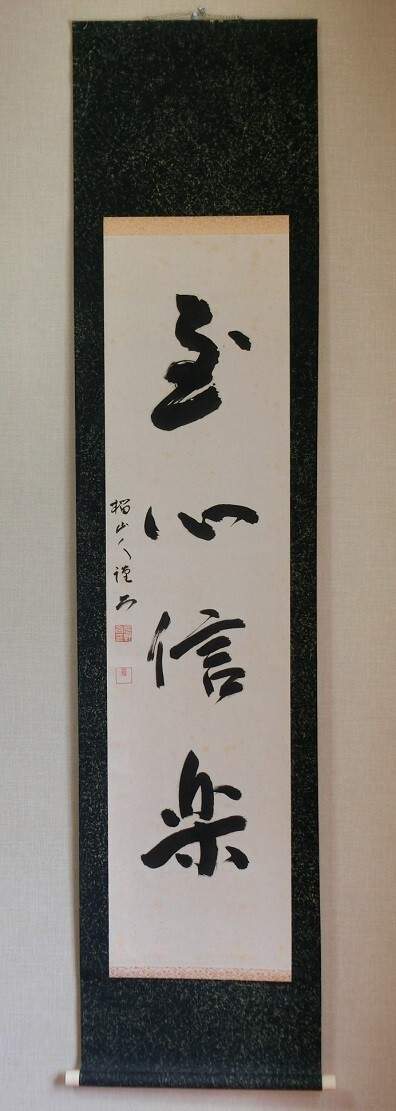 至心信楽
山人謹書